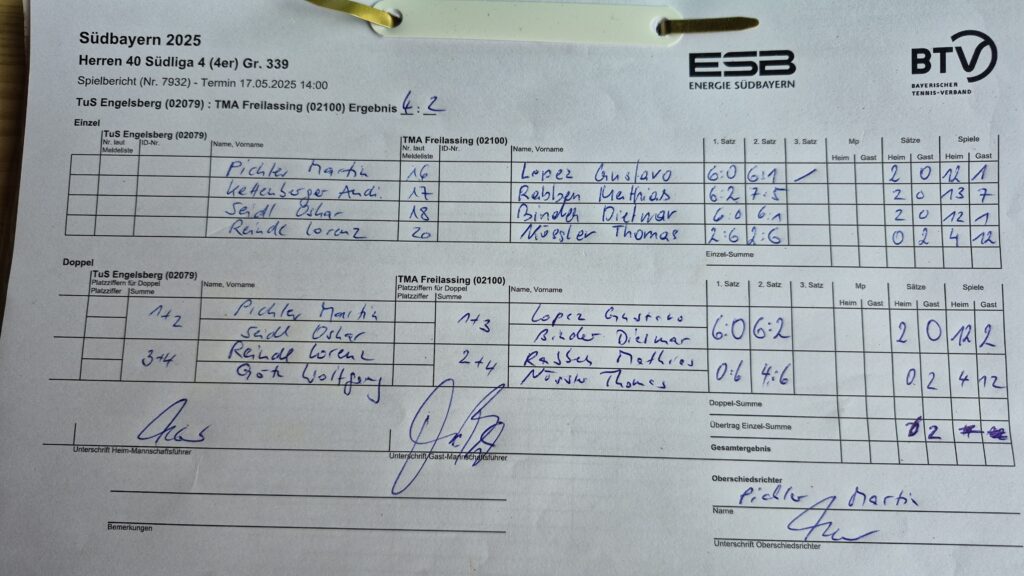 Südbayern 2025
Herren 40 Südliga 4 (4er) Gr. 339
Spielbericht (Nr. 7932) - Termin 17.05.2025 14:00
TuS Engelsberg (02079) : TMA Freilassing (02100) Ergebnis 4 : 2
ESB
ENERGIE SÜDBAYERN
BTV
BAYERISCHER
TENNIS-VERBAND
Einzel
TuS Engelsberg (02079) TMA Freilassing (02100) 1. Satz 2. Satz 3. Satz Mp Sätze Spiele
Nr. laut Meldeliste ID-Nr. Name, Vorname Nr. laut Meldeliste ID-Nr. Name, Vorname Heim Gast Heim Gast Heim Gast
Pichter Martin 16 Lopez Gustavo 6:0 6:1 / 2 0 12 1
Kettenberger Andi. 17 Rabben Matthias 6:2 7:5 2 0 13 7
Seidl Oskar 18 Binder Dietmar 6:0 6:1 2 0 12 1
Reindl Lorenz 20 Nüssler Thomas 2:6 2:6 0 2 4 12
Einzel-Summe
Doppel
TuS Engelsberg (02079) TMA Freilassing (02100) 1. Satz 2. Satz 3. Satz Mp Sätze Spiele
Platzziffern für Doppel Name, Vorname Platzziffern für Doppel Name, Vorname Heim Gast Heim Gast Heim Gast
Platzziffer Summe Platzziffer Summe
1+2 Pichler Martin 1+3 Lopez Gustavo 6:0 6:2 2 0 12 2
Seidl Oskar Binder Dietmar
3+4 Reindl Lorenz 2+4 Rabben Mathias 0:6 4:6 0 2 4 12
Götz Wolfgang Nüssler Thomas
Doppel-Summe
Übertrag Einzel-Summe 2
Gesamtergebnis
Unterschrift Heim-Mannschaftsführer
Unterschrift Gast-Mannschaftsführer
Oberschiedsrichter
Pichler Martin
Name
Unterschrift Oberschiedsrichter
Bemerkungen